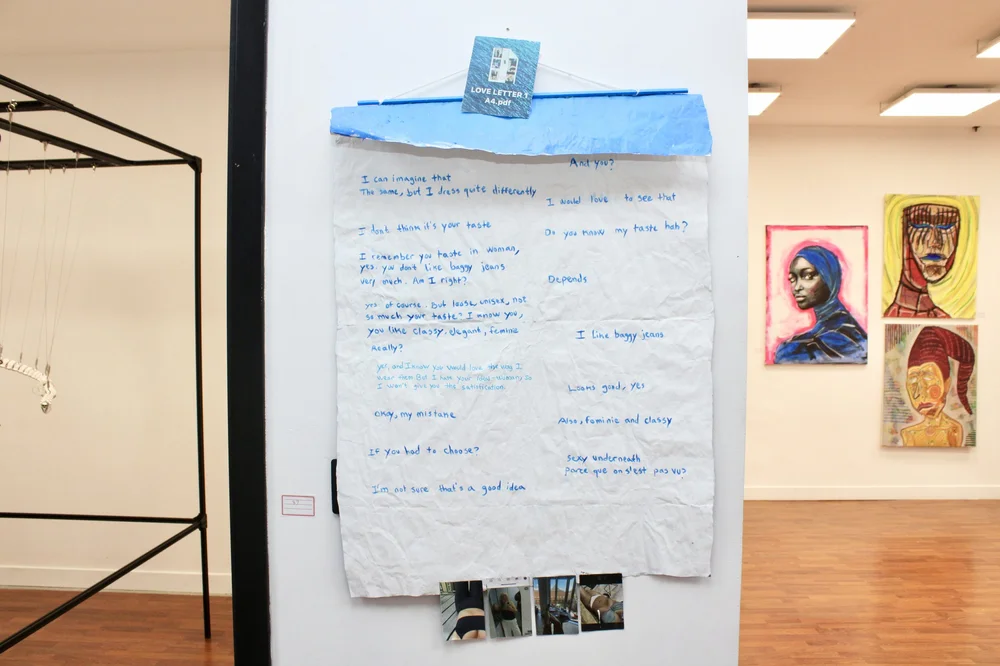 LOVE LETTER 1
A4.pdf
I can imagine that
The same, but I dress quite differently
I dont think it's your taste
I remember you taste in woman,
yes. you dont like baggy jeans
very much. Am I right?
yes of course. But loose unisex, not
so much your taste? I know you,
you like classy, elegant, feminie
Really?
yes, and I know you would love the way I
wear them. But I hate your so
I won't give you the satisfaction.
Okay, my mistake
If you had to choose?
I'm not sure that's a good idea
And you?
I would love to see that
Do you know my taste hah?
Depends
I like baggy jeans
Looks good, yes
Also, feminie and classy
Sexy underneath
Parce que on s'est pas vu?